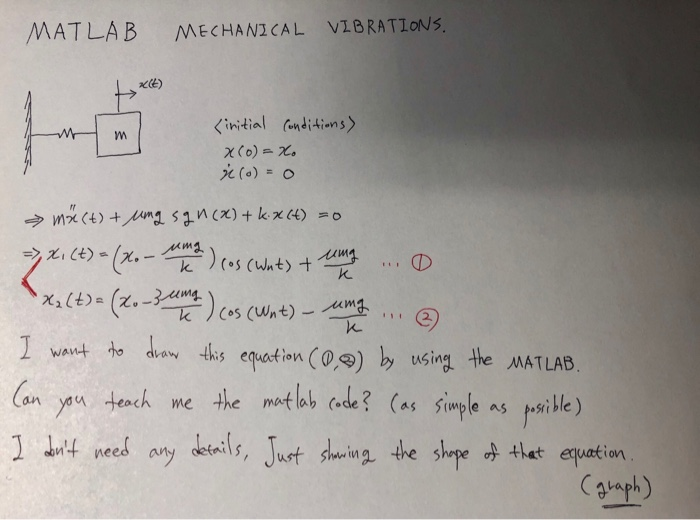 MATLAB MECHANICAL VIBRATIONS.
x(t)
m
<initial conditions>
x(0) = x₀
ẋ(0) = 0
⇒ mẍ(t) + μmg sgn(x) + k·x(t) = 0
⇒ x₁(t) = (x₀ - μmg/k) cos(Wnt) + μmg/k ... ①
x₂(t) = (x₀ - 3μmg/k) cos(Wnt) - μmg/k ... ②
I want to draw this equation (①,②) by using the MATLAB.
Can you teach me the matlab code? (as simple as possible)
I don't need any details, Just showing the shape of that equation.
(graph)